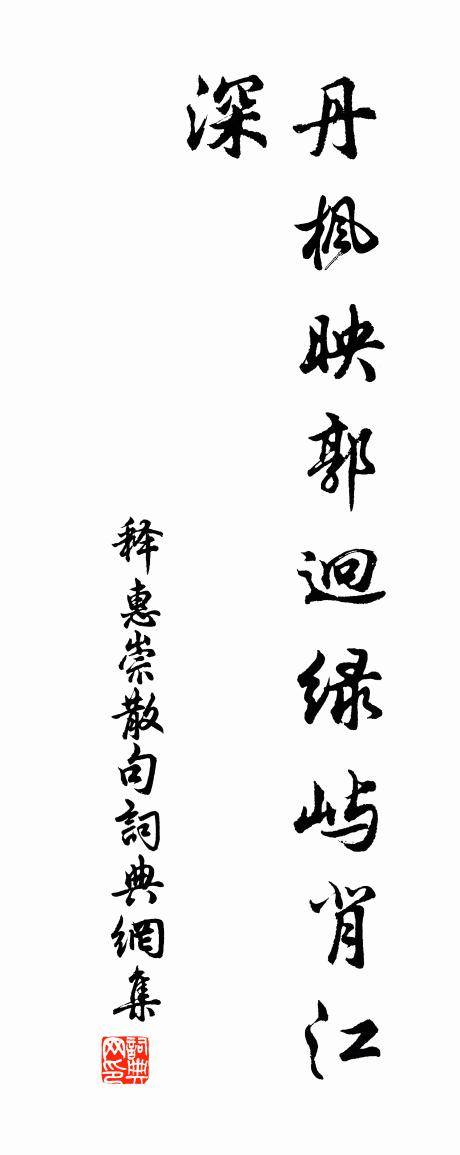 丹枫映郭迥绿屿背江
深
释惠崇散句詞典網集
詞典网印